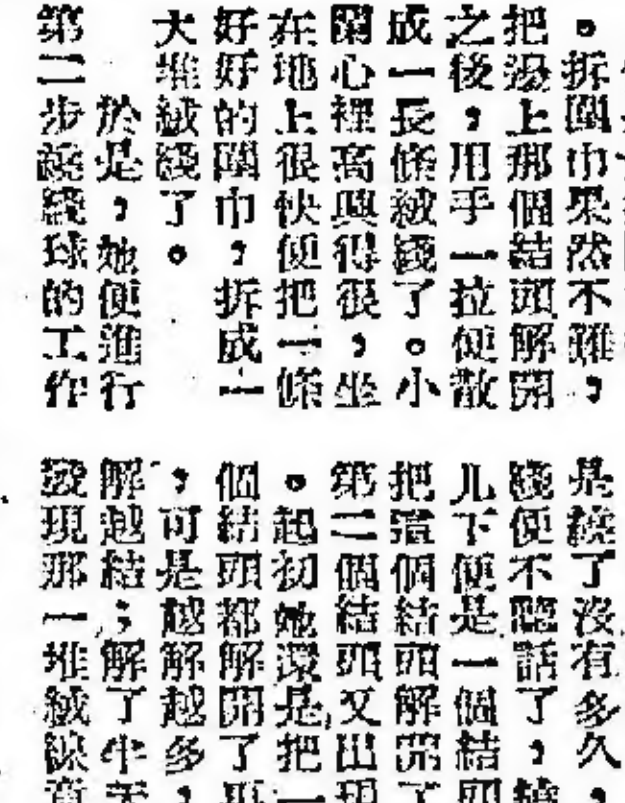 。拆圍巾果然不難，
把湯上那個結頭解開
之後，用手一拉便散
成一長條絨綫了。小
蘭心裡高興得很，坐
在地上很快便把一條
好好的圍巾，拆成一
大堆絨綫了。
於是，她便進行
第二步繞綫球的工作
是繞了沒有多久，
綫便不聽話了，繞
儿下便是一個結，
把這個結頭解開了
第二個結頭又出現
。起初她還是把一
個結頭都解開了，
，可是越解越多，
解越結；解了半天
發現那一堆絨線